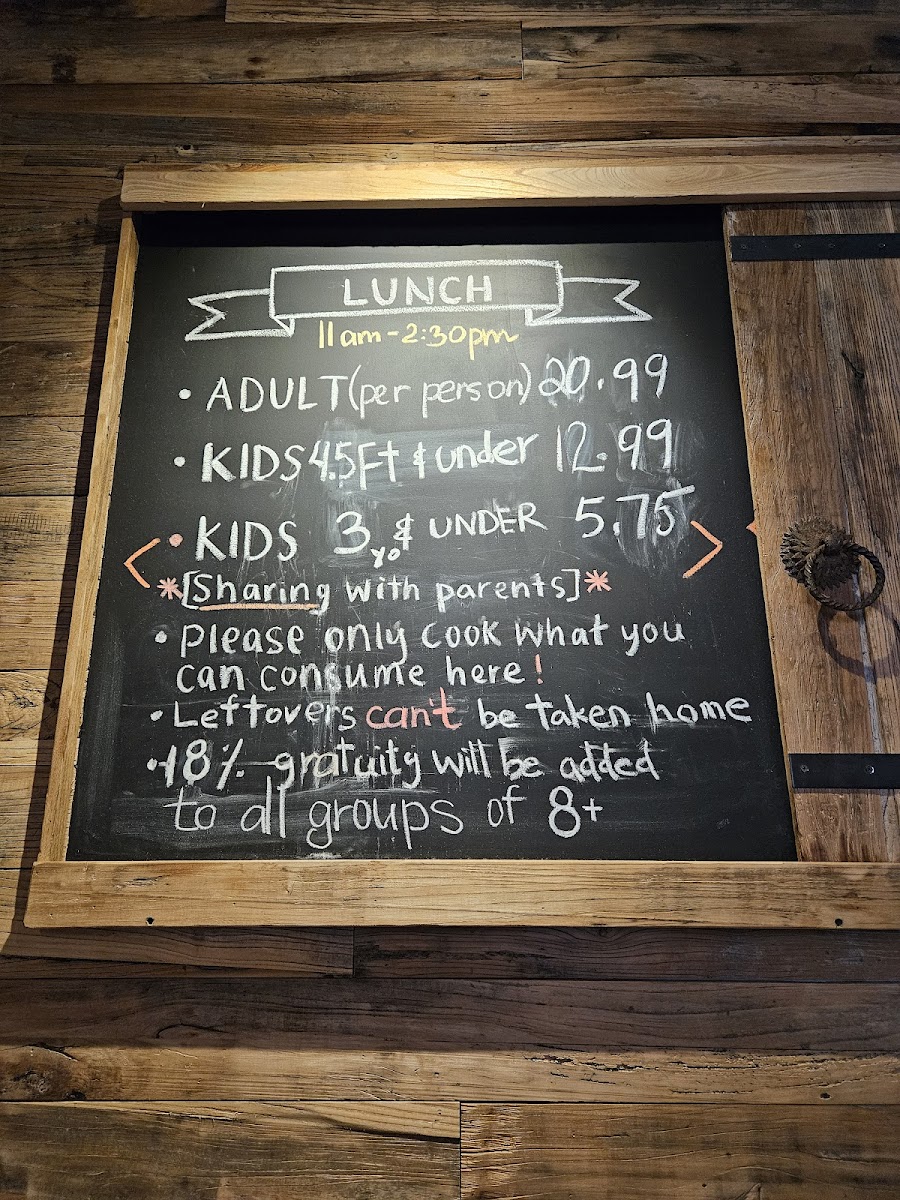 LUNCH
11am-2:30pm
• ADULT (per person) 20.99
• KIDS 4.5Ft & under 12.99
• KIDS 3 yo & UNDER 5.75
*[Sharing with parents]*
• Please only cook what you
can consume here!
• Leftovers can't be taken home
• 18% gratuity will be added
to all groups of 8+